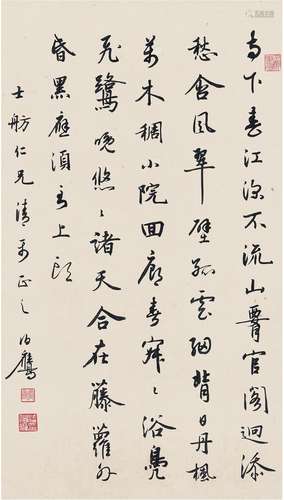 寺下春江深不流山腰官閣迥添
愁含風翠壁孤雲細背日丹楓
萬木稠小院回廊春寂〻浴鳧
飛鷺晚悠〻諸天合在藤蘿外
昏黑應須到上頭
士舫仁兄清正之 伯鷹